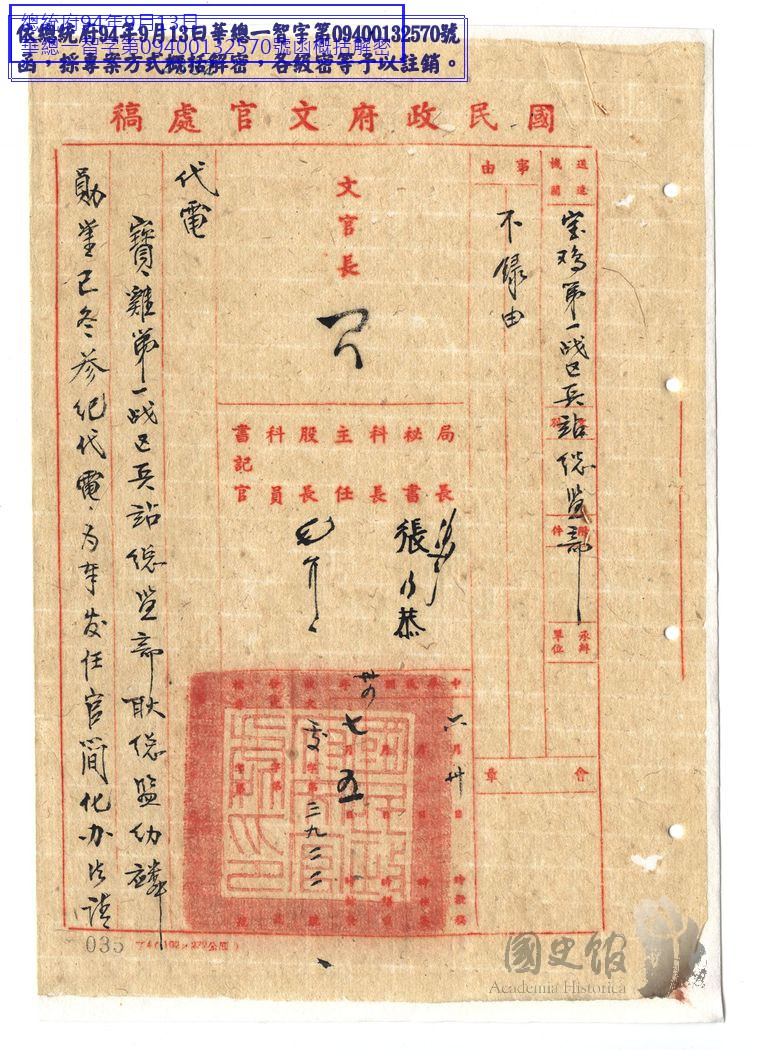 總統府94年9月13日
華總一智字第09400132570號函概括解密
依總統府94年9月13日華總一智字第09400132570號
函，採專案方式概括解密，各級密等予以註銷。
國民政府文官處稿
送達機關
宝鸡第一战区兵站總监部
事由
不錄由
文官長
局長
秘書
科長
主任
股長
科員
書記官
張
恭
承辦單位
會章
六月卅
卅四
七月五
字第三九二二號
代電
寶雞第一战区兵站總监部耿總监幼麟
勛鉴已冬参纪代電為頒发任官简化办法請
035
國史館
Academia Historica